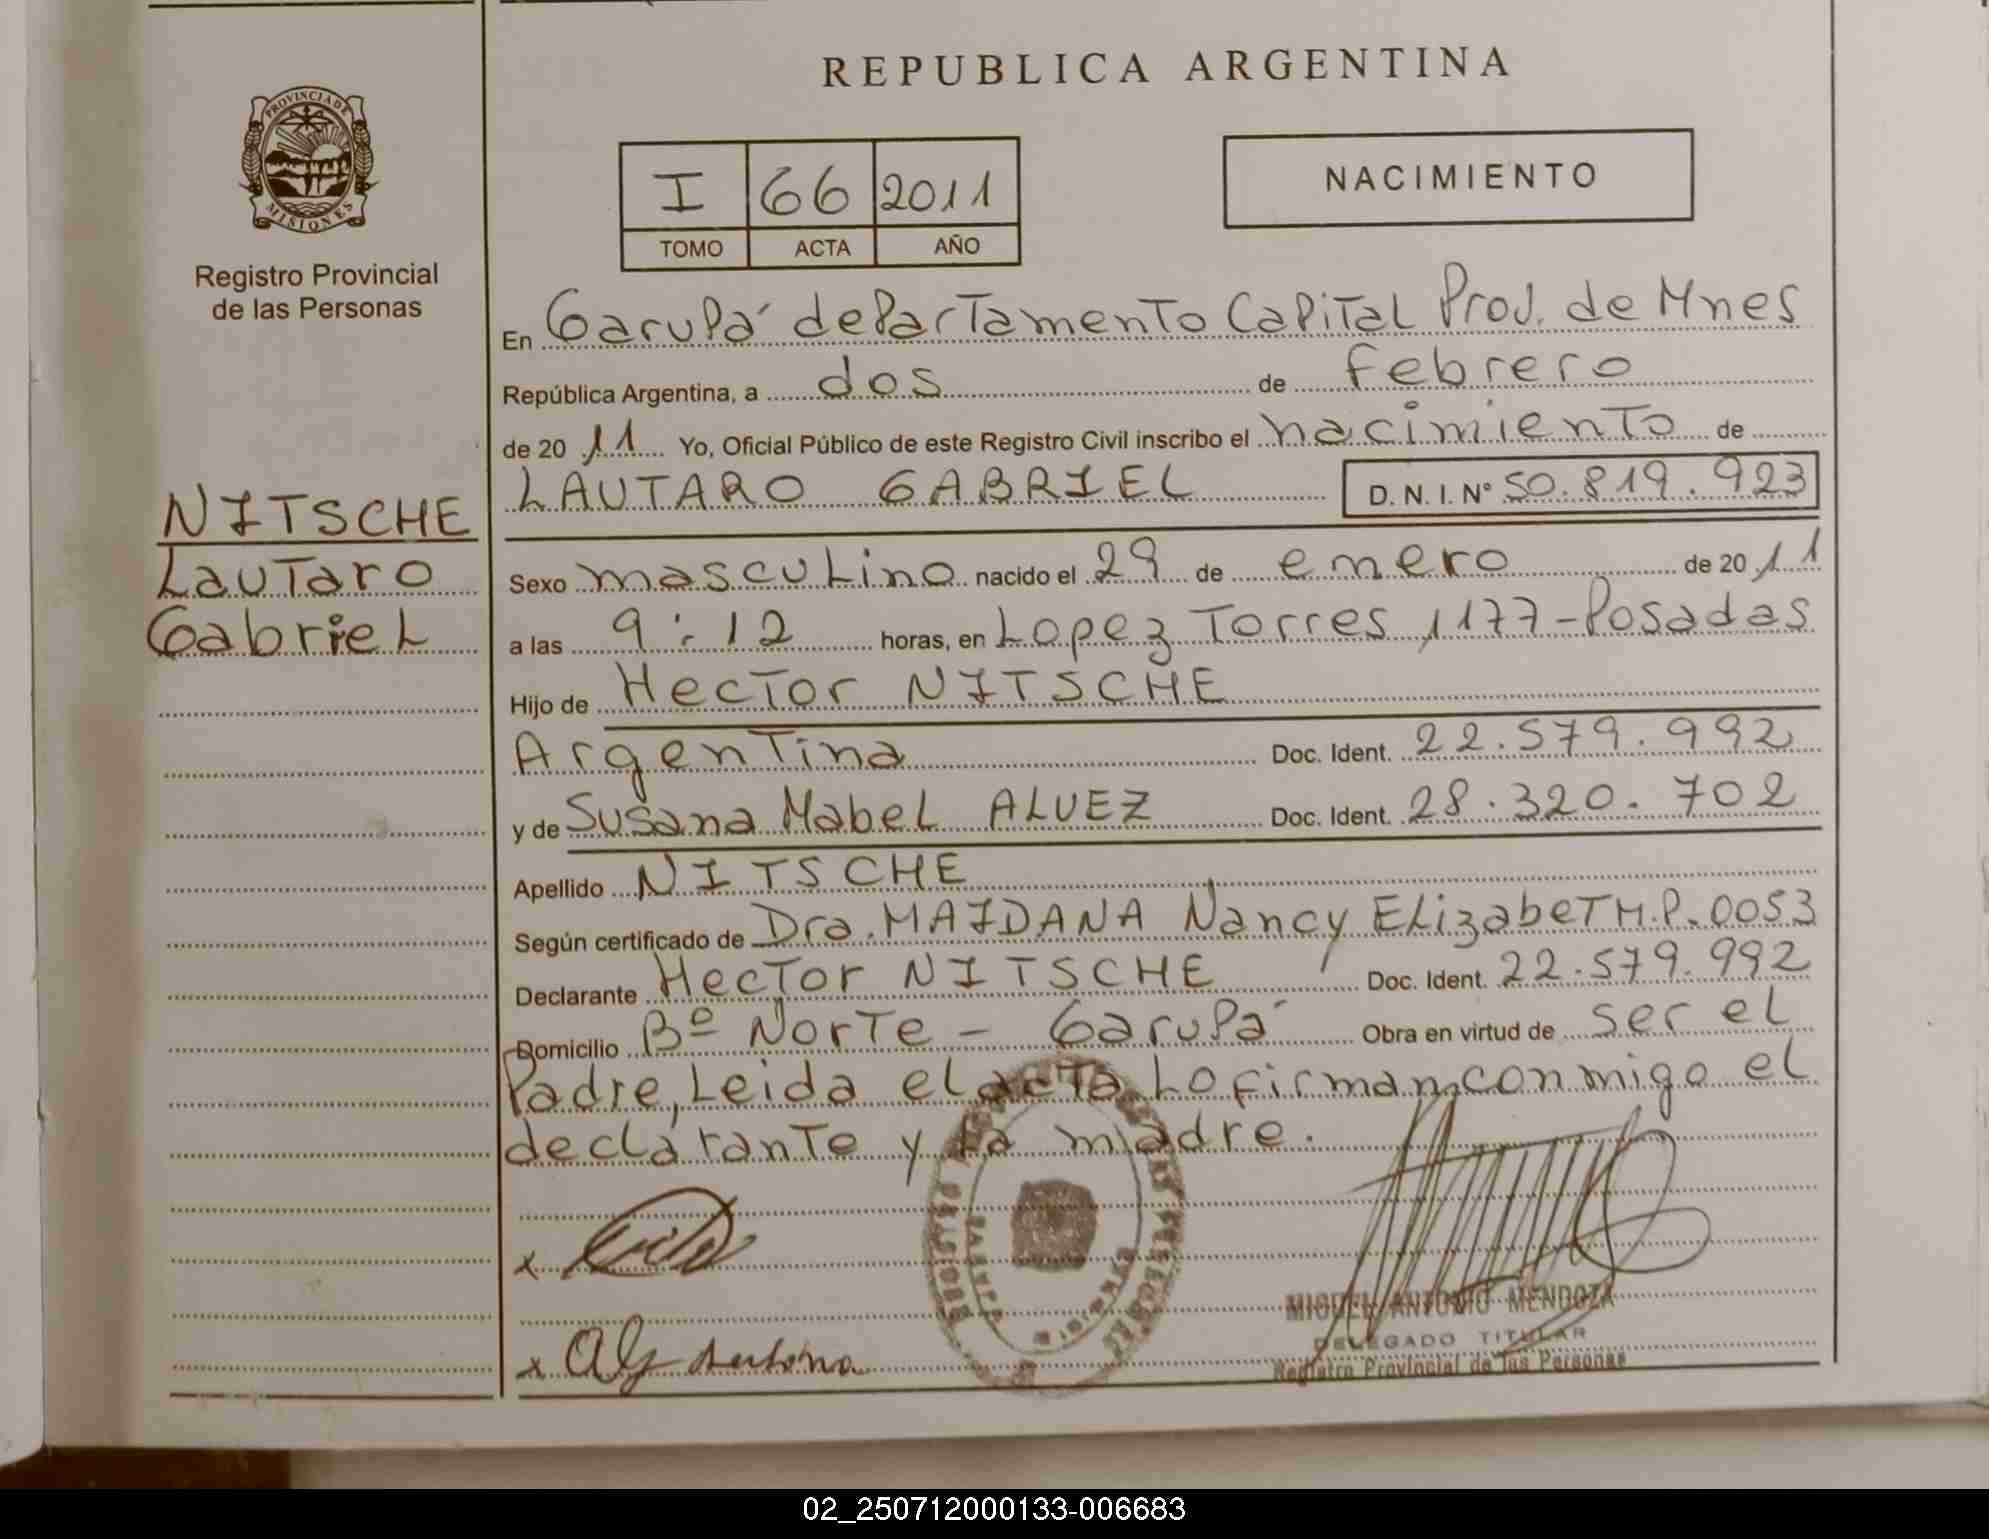 REPUBLICA ARGENTINA
PROVINCIA DE
MISIONES
Registro Provincial
de las Personas
I 66 2011
TOMO ACTA AÑO
NACIMIENTO
NITSCHE
Lautaro
Gabriel
En Garupá departamento Capital Prov. de Mnes
República Argentina, a dos de febrero
de 2011 Yo, Oficial Público de este Registro Civil inscribo el nacimiento de
LAUTARO GABRIEL D.N.I.Nº 50.819.923
Sexo masculino nacido el 29 de enero de 2011
a las 9:12 horas, en Lopez Torres 1177-Posadas
Hijo de Hector NITSCHE
Argentina Doc. Ident. 22.579.992
y de Susana Mabel ALVEZ Doc. Ident. 28.320.702
Apellido NITSCHE
Según certificado de Dra. MAIDANA Nancy Elizabet M.P. 0053
Declarante Hector NITSCHE Doc. Ident. 22.579.992
Domicilio Bº Norte - Garupá Obra en virtud de ser el
Padre, Leida el acta Lo firman conmigo el
declarante y la madre.
x
x
MIGUEL ANTONIO MENDOZA
DELEGADO TITULAR
Registro Provincial de las Personas
02_250712000133-006683